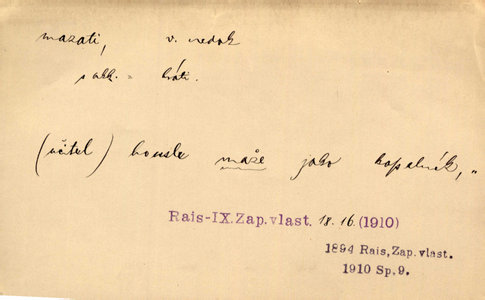 mazati, v. nedok
s akk. = hráti.
(učitel) housle maže jako kopelník,"
Rais-IX.Zap.vlast. 18.16.(1910)
1894 Rais, Zap. vlast.
1910 Sp. 9.